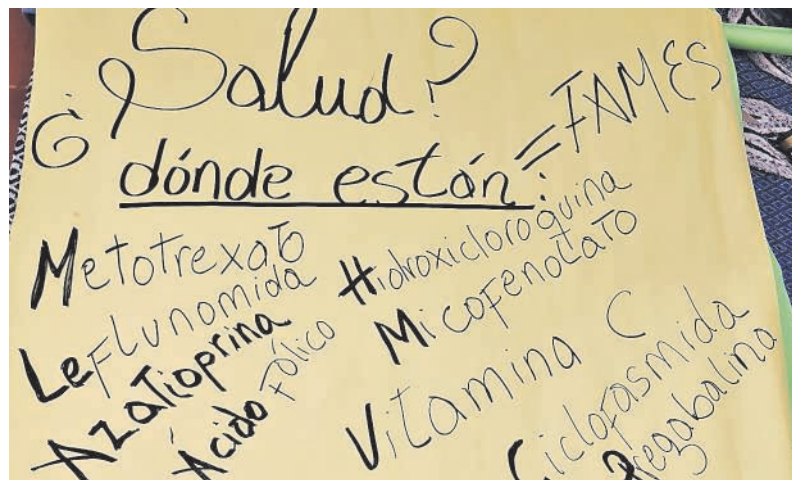 ¿Salud?
dónde están: = FAMES
Metotrexato
Leflunomida
Azatioprina
Ácido Fólico
Hidroxicloroquina
Micofenolato
Vitamina C
Ciclofasmida
Pregabalina